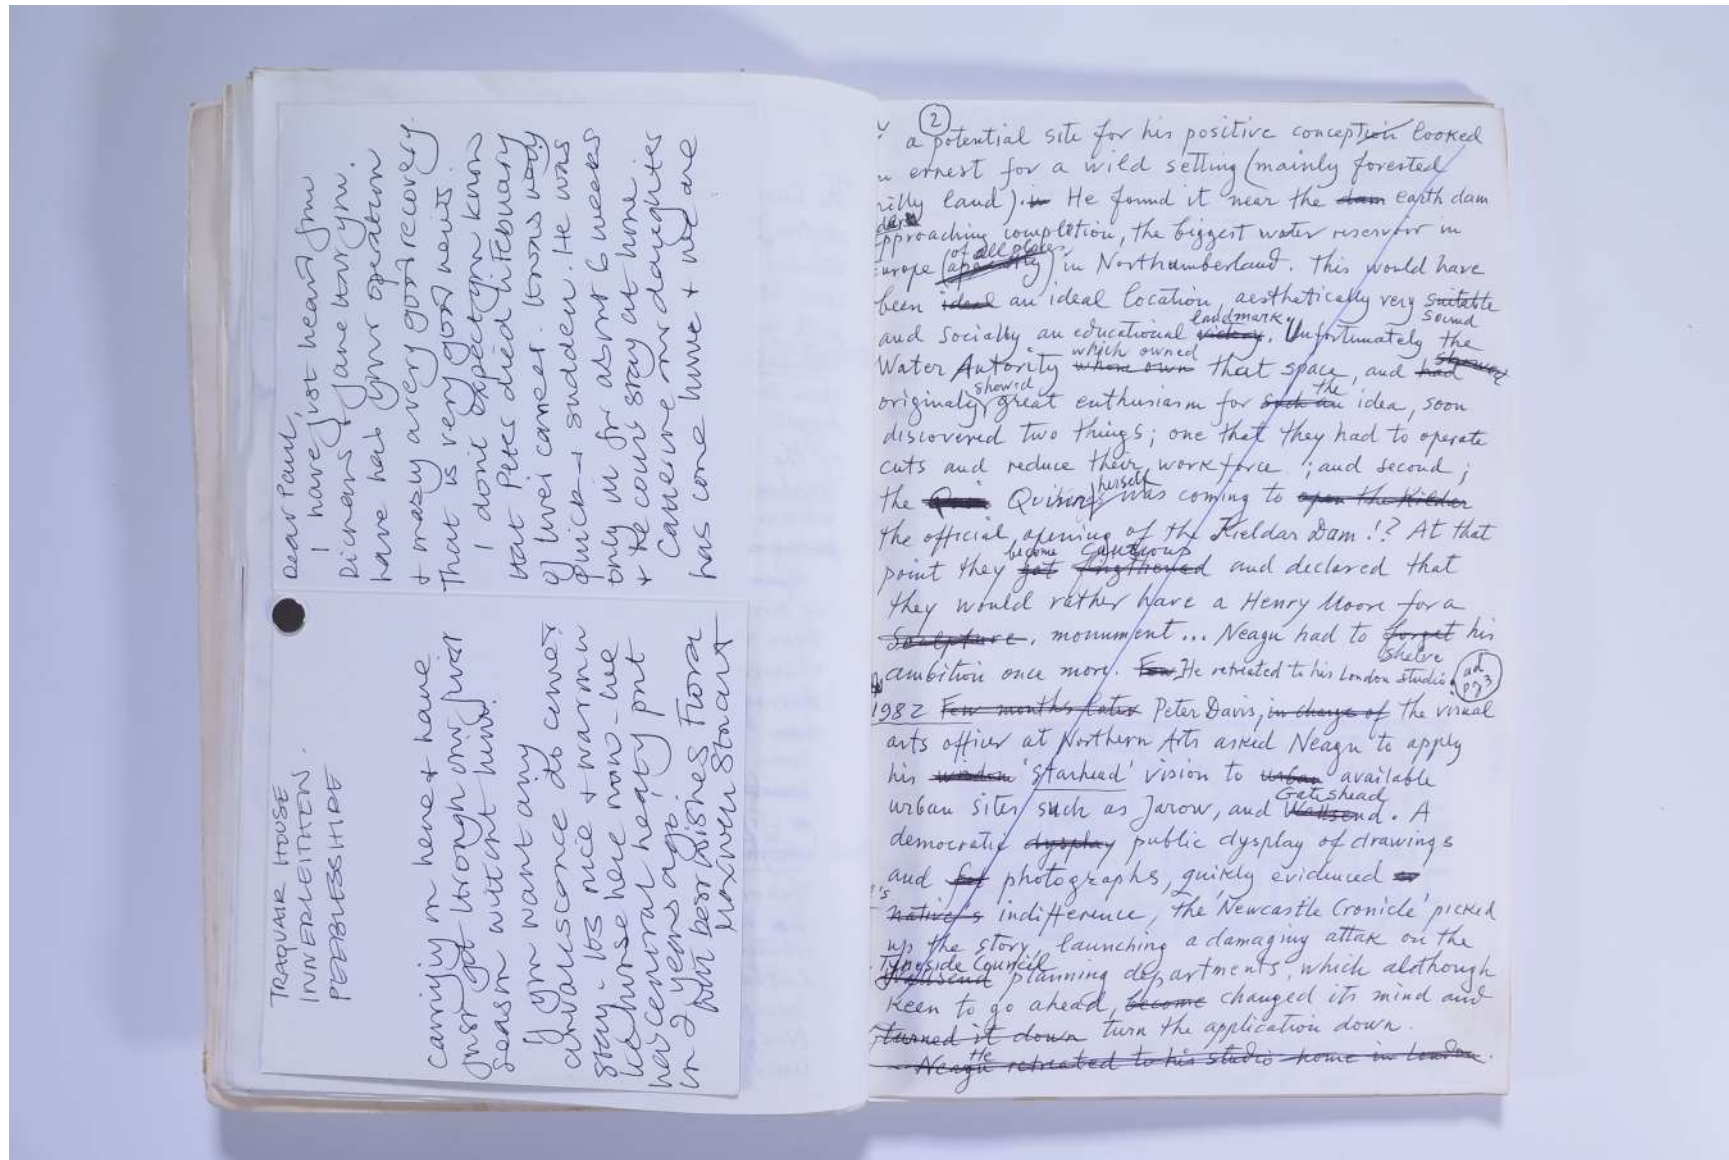 TRAQUAIR HOUSE
INNERLEITHEN.
PEEBLESSHIRE
Dear Paul,
I have just heard from
Richard & Jane Harvey
have had your operation
& may a very good recovery.
That is very good news.
I don't expect you know
that Peter died in February
of liver cancer. It was very
quick & sudden. He was
only in for about 6 weeks
& he could stay at home.
Catherine my daughter
has come home & we are
carrying on here & have
just got through our first
season without him.
If you want any
convalescence do come &
stay - its nice & warm in
the house here now - we
have central heating put
in 2 years ago.
With best wishes Flora
Maxwell Stuart
2
a potential site for his positive conception looked
in ernest for a wild setting (mainly forested
hilly land). in He found it near the dam earth dam
approaching completion, the biggest water reservoir in
of all places,
Europe () in Northumberland. This would have
been ideal an ideal location, aesthetically very suitable
landmark sound
and socially an educational victory. Unfortunately the
which owned
Water Autority whose own that space, and had showed
showed the
originaly great enthusiasm for such an idea, soon
discovered two things; one that they had to operate
cuts and reduce their workforce; and second;
herself
the was coming to open the Kielder
the official opening of the Kieldar Dam!? At that
become cautious
point they got and declared that
they would rather have a Henry Moore for a
Sculpture. monument... Neagu had to forget his
shelve
ambition once more. Few He retreated to his London studio.
ad pg3
1982 Few months later Peter Davis, in charge of the visual
arts officer at Northern Arts asked Neagu to apply
his wisdom 'Starhead' vision to urban available
Gateshead
urban sites such as Jarow, and Wallsend. A
democratic dysplay public dysplay of drawings
and for photographs, quikly evidenced
native's indifference, the 'Newcastle Cronicle' picked
up the story, launching a damaging attak on the
Tyneside Council
Wallsend planning departments, which although
keen to go ahead, become changed its mind and
turned it down turn the application down.
He
Neagu retreated to his studio home in London.